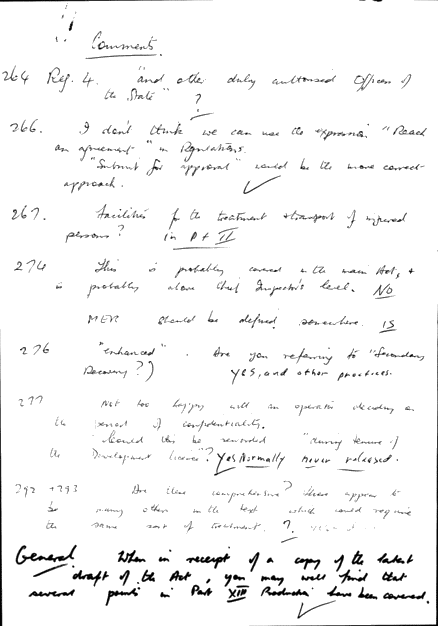 Comments.
264 Reg. 4. "and other duly authorised Officers of
the State"
?
266. I don't think we can use the expression "Reach
an agreement" in Regulations.
"Submit for approval" would be the more correct
approach. ✓
267. Facilities for the treatment + transport of injured
persons? in Pt II
274 This is probably covered in the main Act, +
is probably above Chief Inspector's level. NO
MER should be defined somewhere. IS
276 "enhanced". Are you referring to "Secondary
Recovery?") YES, and other practices.
277 Not too happy with an operator deciding on
the period of confidentiality.
Could this be reworded "during tenure of
the Development licence"? Yes Normally never released.
392 + 393 Are these comprehensive? There appear to
be many others in the text which could require
the same sort of treatment. ?
General When in receipt of a copy of the latest
draft of the Act, you may well find that
several points in Part XIII Production have been covered.
✓